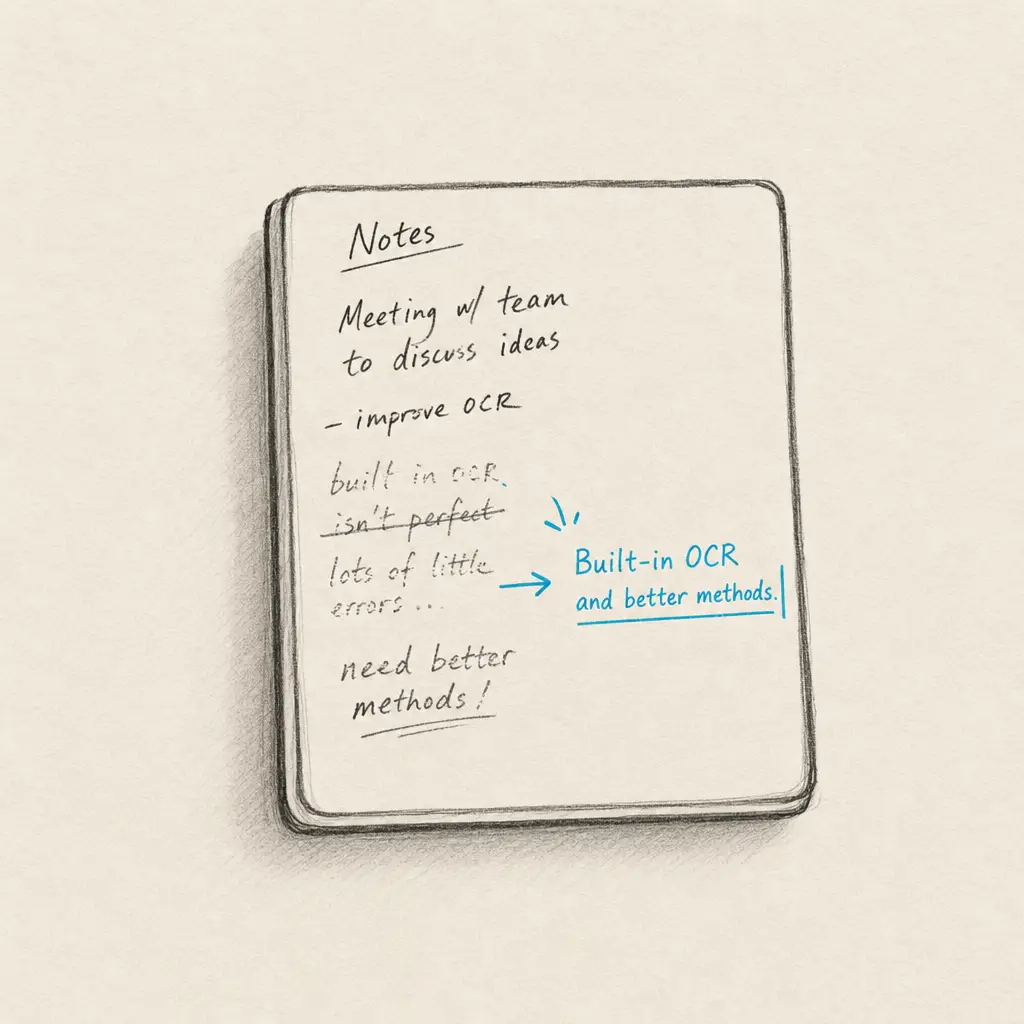 Notes
Meeting w/ team
to discuss ideas
– improve OCR
built in OCR.
isn't perfect
lots of little
errors ...
need better
methods!
Built-in OCR
and better methods.